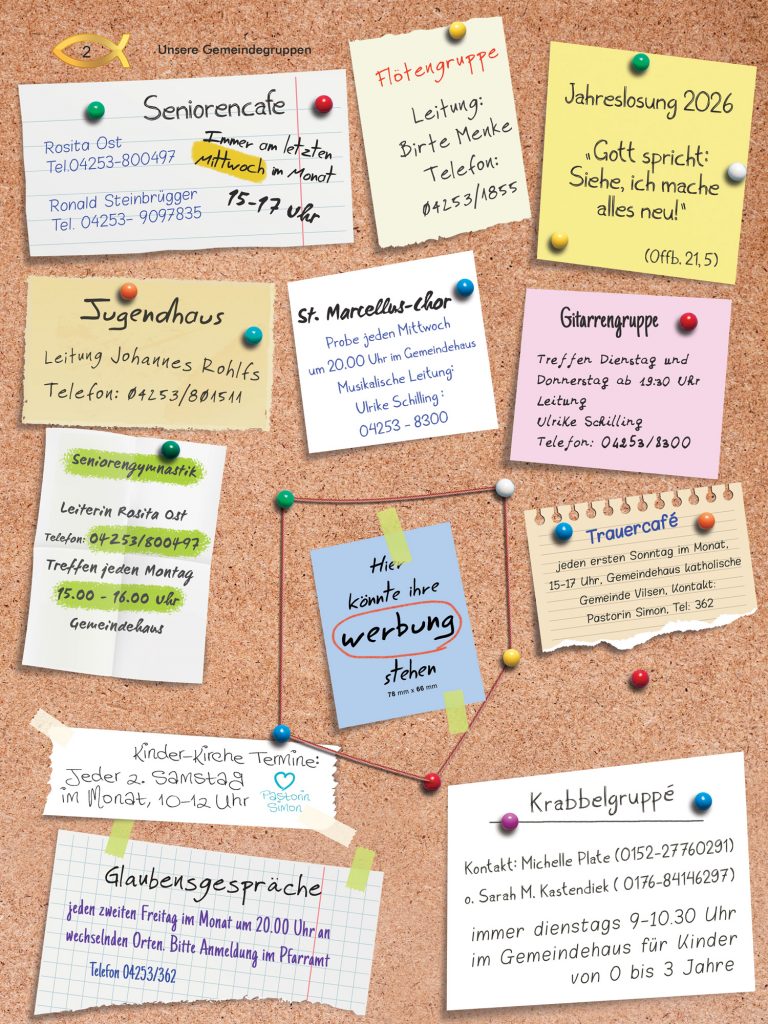 2
Unsere Gemeindegruppen
Seniorencafe
Rosita Ost
Tel.04253-800497
Ronald Steinbrügger
Tel. 04253- 9097835
Immer am letzten
Mittwoch im Monat
15-17 Uhr
Flötengruppe
Leitung:
Birte Menke
Telefon:
04253/1855
Jahreslosung 2026
„Gott spricht:
Siehe, ich mache
alles neu!“
(Offb. 21, 5)
Jugendhaus
Leitung Johannes Rohlfs
Telefon: 04253/801511
St. Marcellus-Chor
Probe jeden Mittwoch
um 20.00 Uhr im Gemeindehaus
Musikalische Leitung:
Ulrike Schilling :
04253 - 8300
Gitarrengruppe
Treffen Dienstag und
Donnerstag ab 19:30 Uhr
Leitung
Ulrike Schilling
Telefon: 04253/8300
Seniorengymnastik
Leiterin Rosita Ost
Telefon: 04253/800497
Treffen jeden Montag
15.00 - 16.00 Uhr
Gemeindehaus
Hier
könnte ihre
werbung
stehen
76 mm x 66 mm
Trauercafé
jeden ersten Sonntag im Monat,
15-17 Uhr, Gemeindehaus katholische
Gemeinde Vilsen, Kontakt:
Pastorin Simon, Tel: 362
Kinder-Kirche Termine:
Jeder 2. Samstag
im Monat, 10-12 Uhr
Pastorin
Simon
Glaubensgespräche
jeden zweiten Freitag im Monat um 20.00 Uhr an
wechselnden Orten. Bitte Anmeldung im Pfarramt
Telefon 04253/362
Krabbelgruppé
Kontakt: Michelle Plate (0152-27760291)
o. Sarah M. Kastendiek ( 0176-84146297)
immer dienstags 9-10.30 Uhr
im Gemeindehaus für Kinder
von 0 bis 3 Jahre